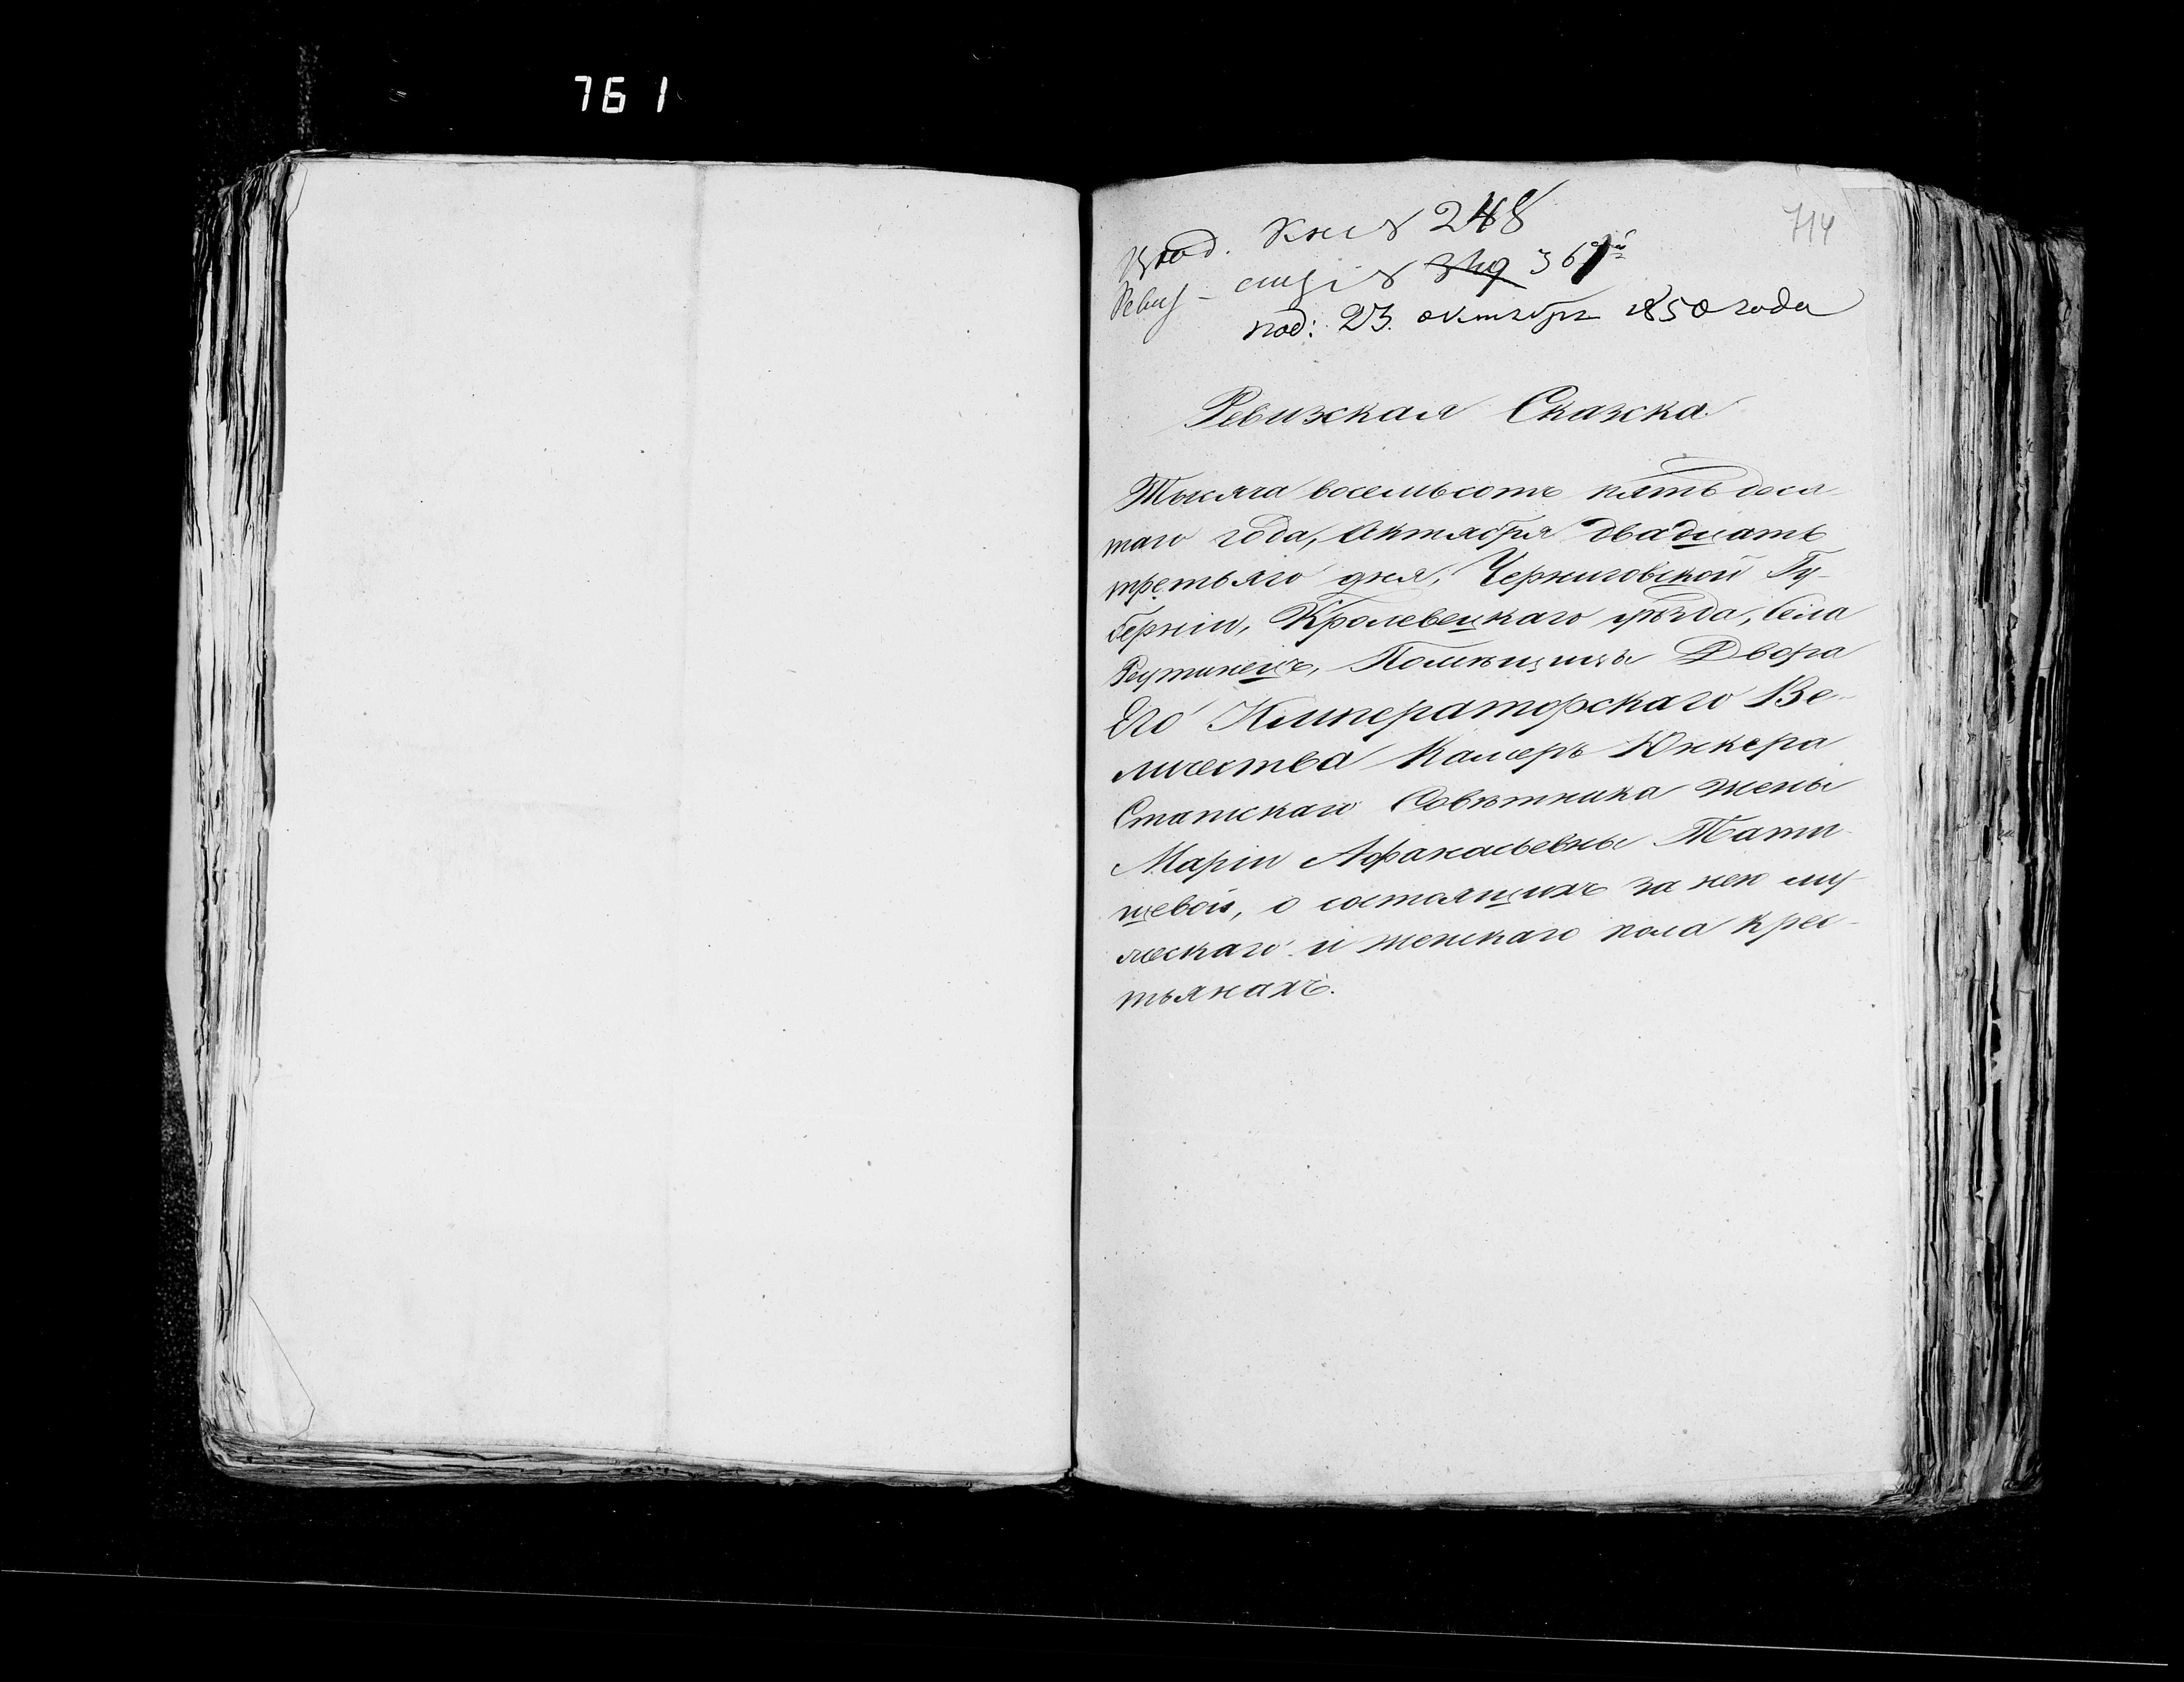 761
714
Вход. Кни № 248
Ревиз – сказ № 349 361й
под: 23. октября 1850 года
Ревизская Сказска.
Тысяча восемьсотъ пятьдеся-
таго года, Октября двадцать
третьяго дня, Черниговской Гу-
берніи, Кролевецкаго уѣзда, Села
Реутинецъ, Помѣщицы Двора
Его Императорскаго Ве-
личества Камеръ Юнкера
Статскаго Совѣтника жены
Маріи Афанасьевны Тати-
щевой, о состоящихъ за нею му-
жескаго и женскаго пола крес-
тьянахъ.